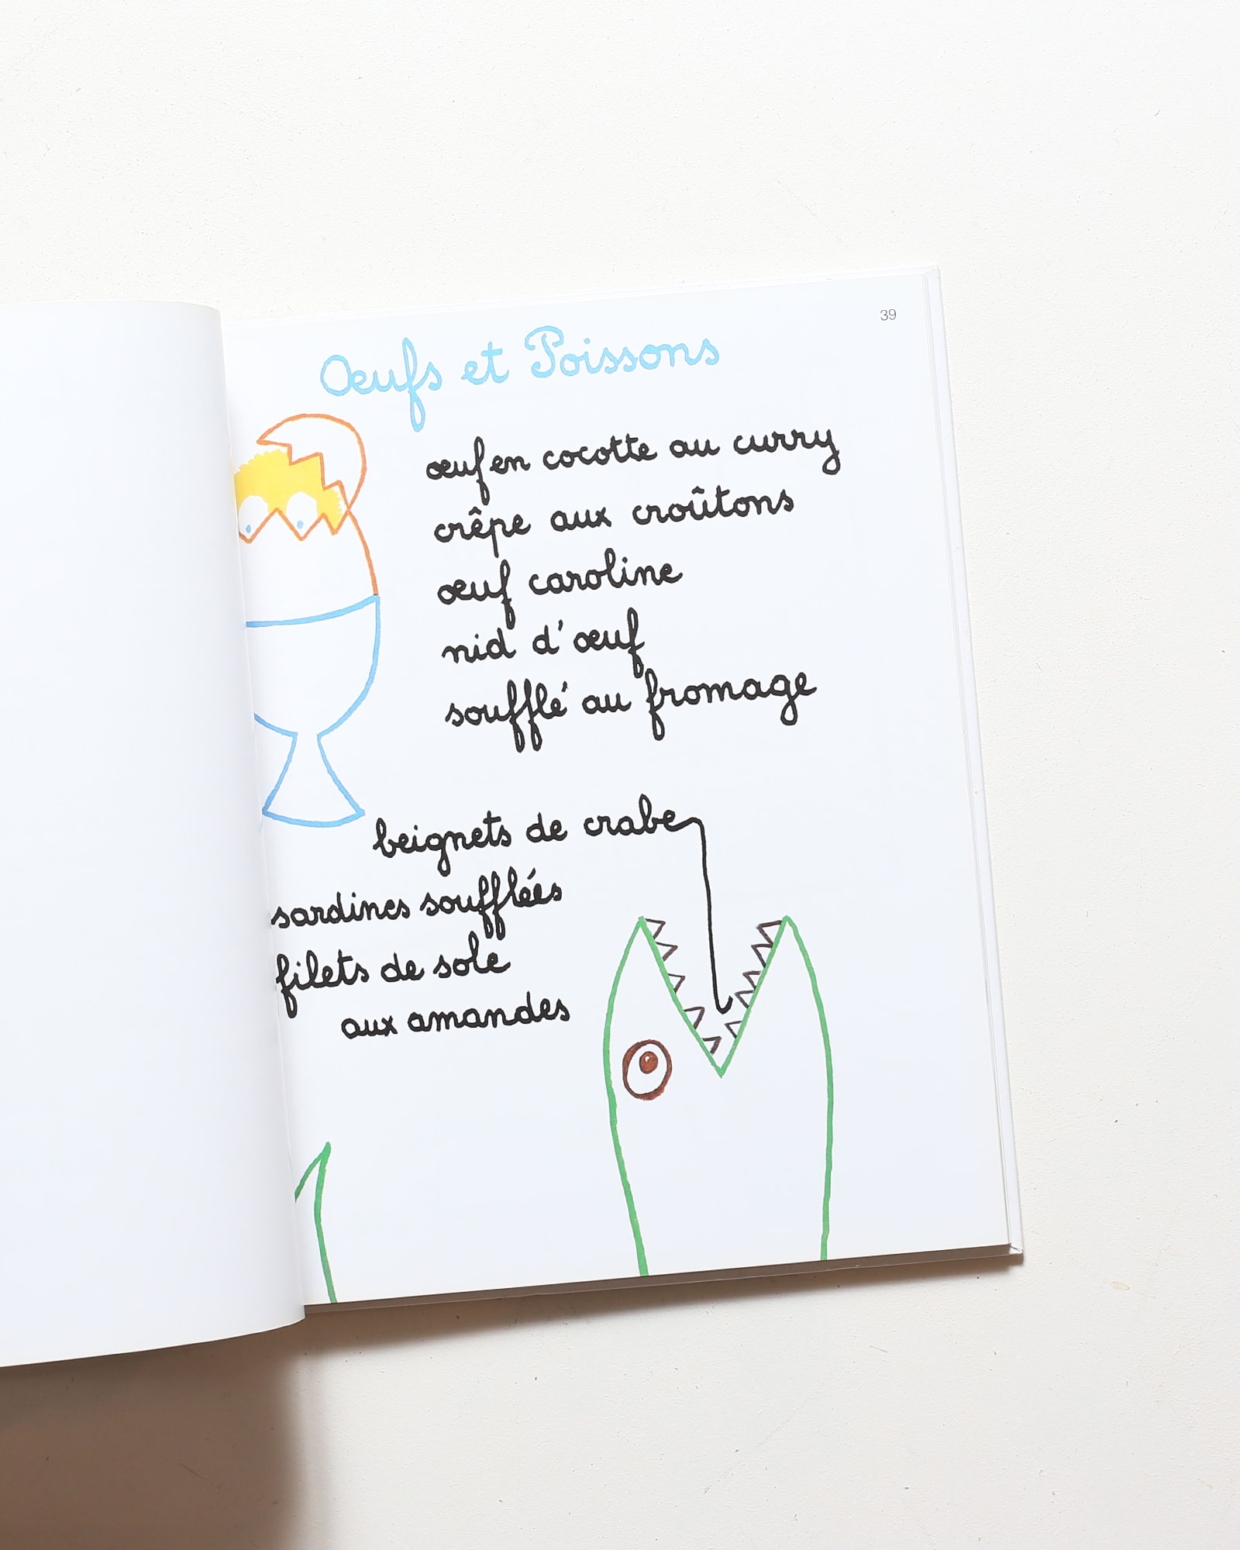 39
Œufs et Poissons
œuf en cocotte au curry
crêpe aux croûtons
œuf caroline
nid d'œuf
soufflé au fromage
beignets de crabe
sardines soufflées
filets de sole
aux amandes